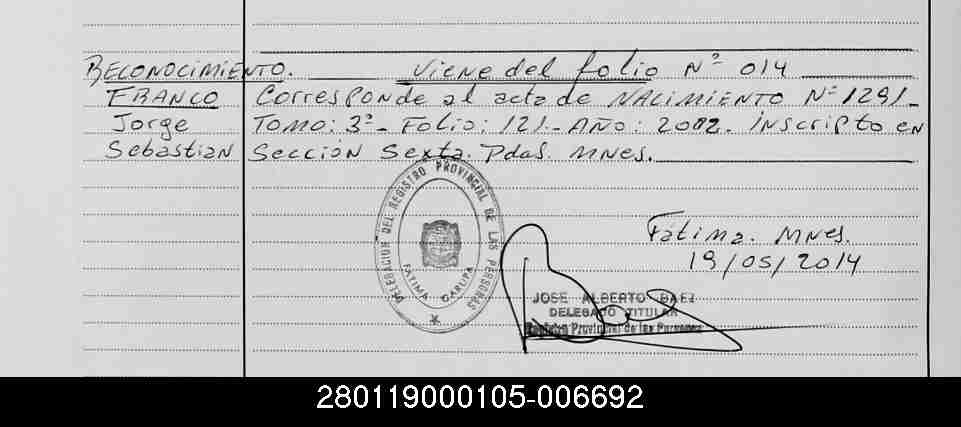 RECONOCIMIENTO. Viene del folio Nº 014
FRANCO Corresponde al acta de NACIMIENTO Nº 1291-
Jorge TOMO: 3º- FOLIO: 121- AÑO: 2002. inscripto en
Sebastian Sección Sexta. Pdas. MNES.
DELEGACION DEL REGISTRO PROVINCIAL DE LAS PERSONAS
FATIMA GARUPA
Fátima. MNES.
19/05/2014
JOSE ALBERTO BAEZ
DELEGADO TITULAR
Registro Provincial de las Personas
280119000105-006692